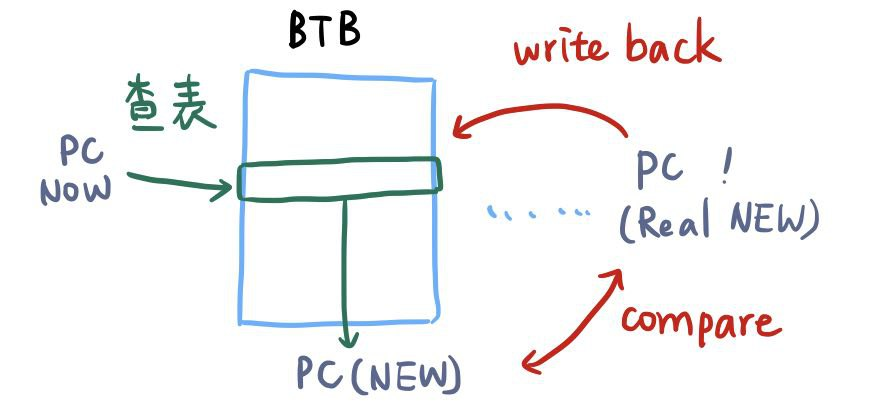 BTB
write back
查表
PC
NOW
PC !
(Real NEW)
compare
PC (NEW)